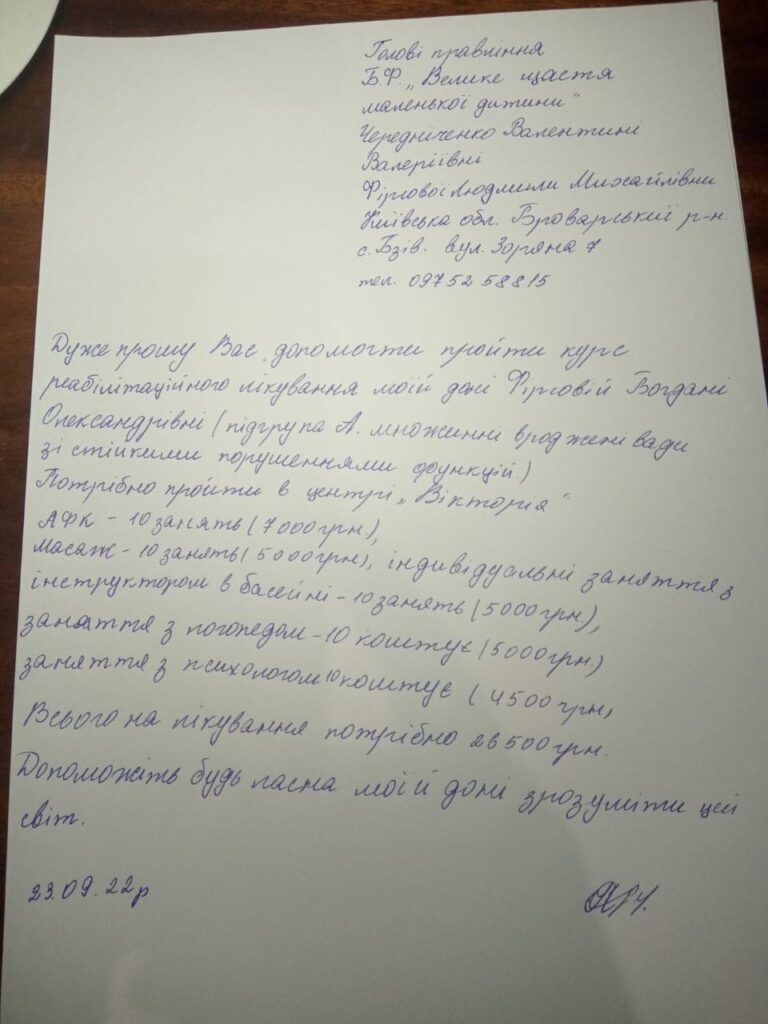 Голові правління
Б.Ф. „Велике щастя
маленької дитини"
Чередніченко Валентині
Валеріївні
Фіргової Людмили Михайлівни
Київська обл. Броварський р-н.
с. Бзів. вул. Зоряна 7
тел. 0975258815
Дуже прошу Вас допомогти пройти курс
реабілітаційного лікування моїй доні Фірговій Богдані
Олександрівні (підгрупа А. множинні вроджені вади
зі стійкими порушеннями функцій.)
Потрібно пройти в центрі „Вікторія"
АФК - 10 занять (7000грн),
Масаж - 10 занять (5000грн), індивідуальні заняття з
інструктором в басейні - 10 занять (5000грн.),
заняття з логопедом - 10 коштує (5000грн.)
заняття з психологом 10 коштує (4500грн,
Всього на лікування потрібно 26500грн.
Допоможіть будь ласка моїй доні зрозуміти цей
світ.
23.09.22р